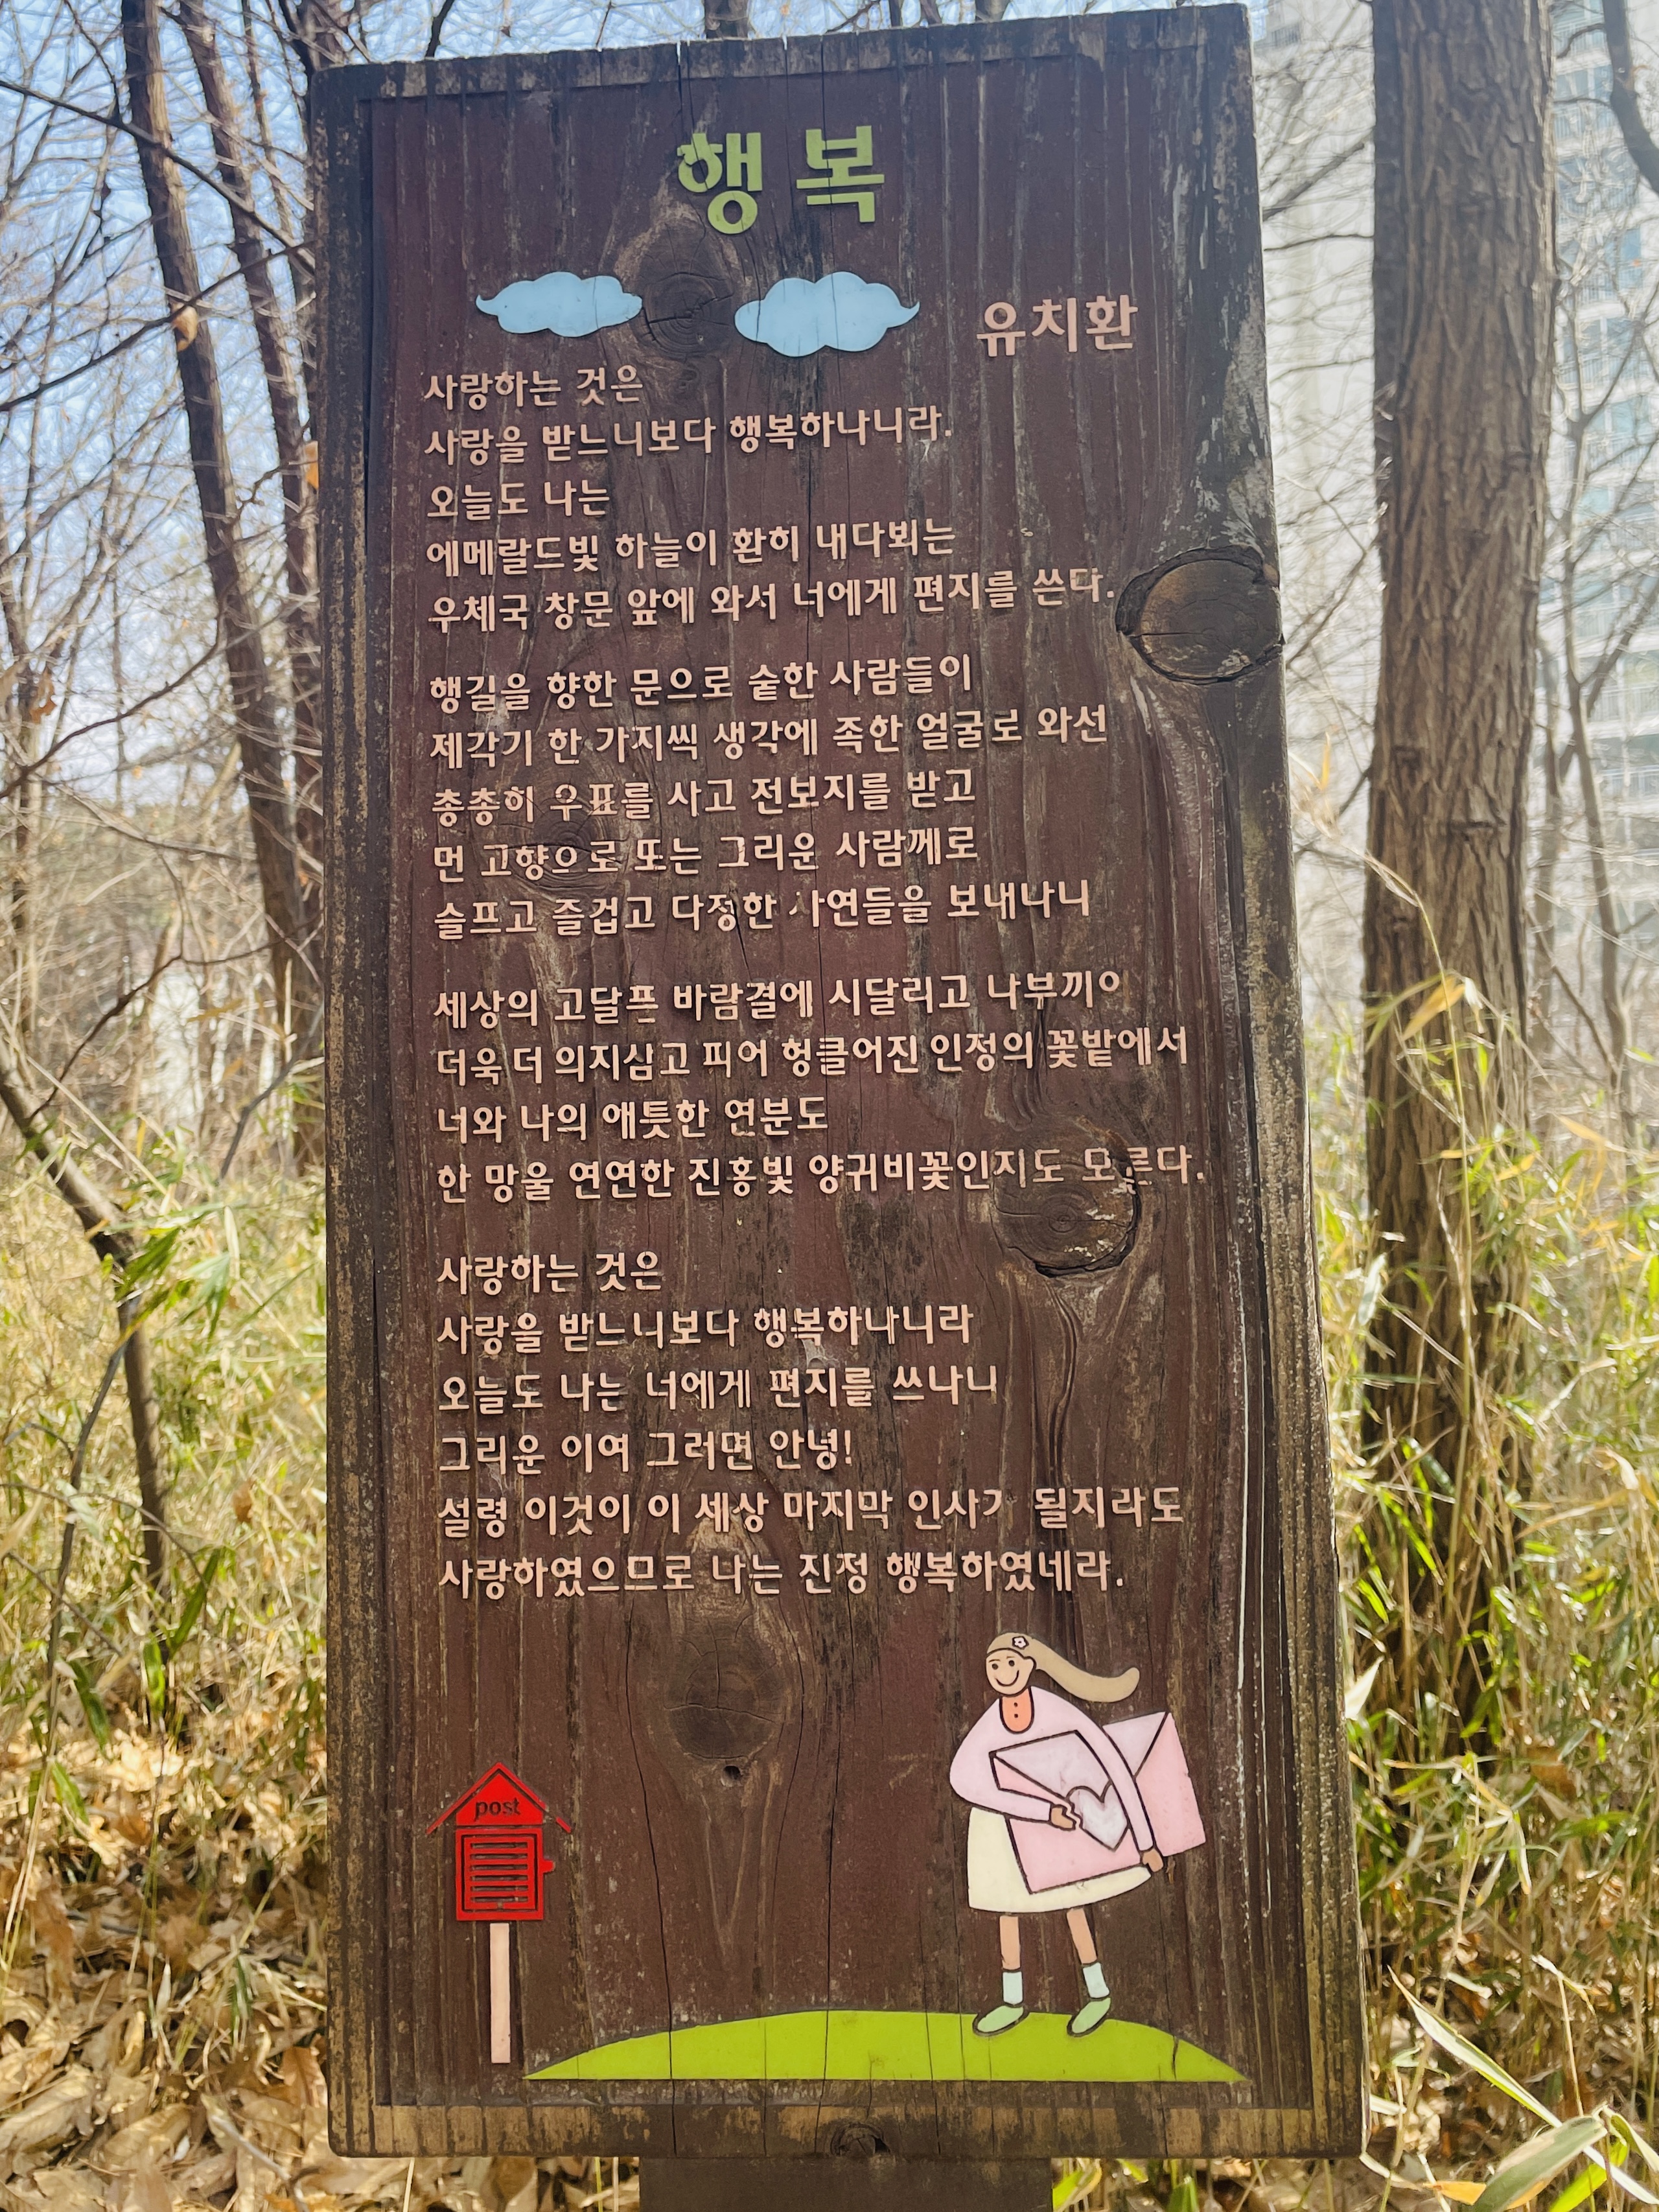 행복
유치환
사랑하는 것은
사랑을 받느니보다 행복하나니라.
오늘도 나는
에메랄드빛 하늘이 환히 내다뵈는
우체국 창문 앞에 와서 너에게 편지를 쓴다.
행길을 향한 문으로 숱한 사람들이
제각기 한 가지씩 생각에 족한 얼굴로 와선
총총히 우표를 사고 전보지를 받고
먼 고향으로 또는 그리운 사람께로
슬프고 즐겁고 다정한 사연들을 보내나니
세상의 고달픈 바람결에 시달리고 나부끼어
더욱 더 의지삼고 피어 헝클어진 인정의 꽃밭에서
너와 나의 애틋한 연분도
한 망울 연연한 진홍빛 양귀비꽃인지도 모른다.
사랑하는 것은
사랑을 받느니보다 행복하나니라
오늘도 나는 너에게 편지를 쓰나니
그리운 이여 그러면 안녕!
설령 이것이 이 세상 마지막 인사가 될지라도
사랑하였으므로 나는 진정 행복하였네라.
post